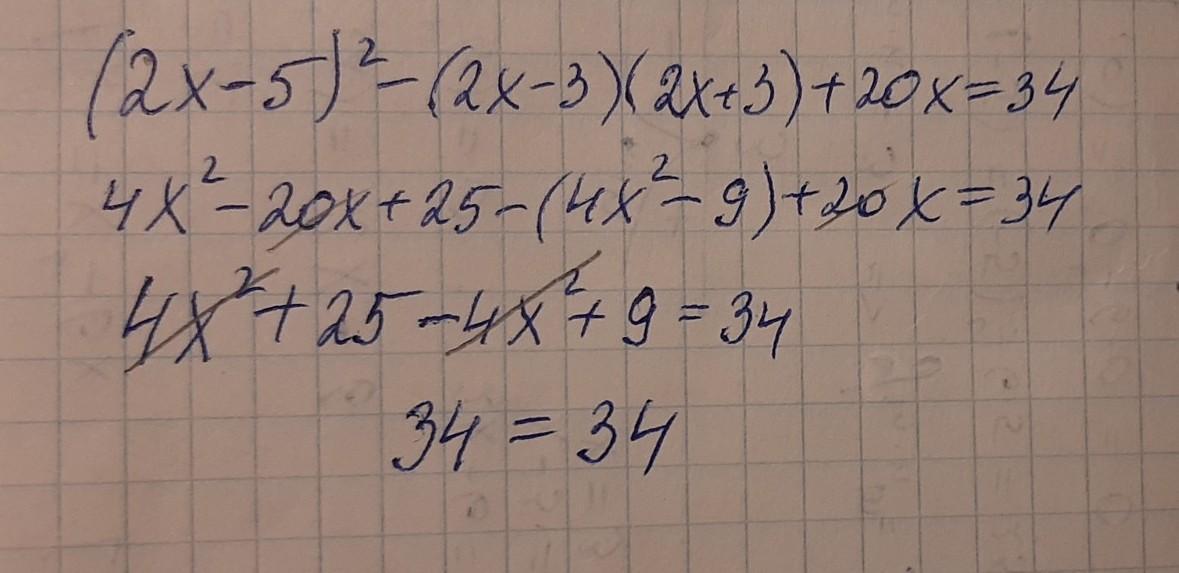 (2x-5)²-(2x-3)(2x+3)+20x=34
4x²-20x+25-(4x²-9)+20x=34
4x²+25-4x²+9=34
34=34